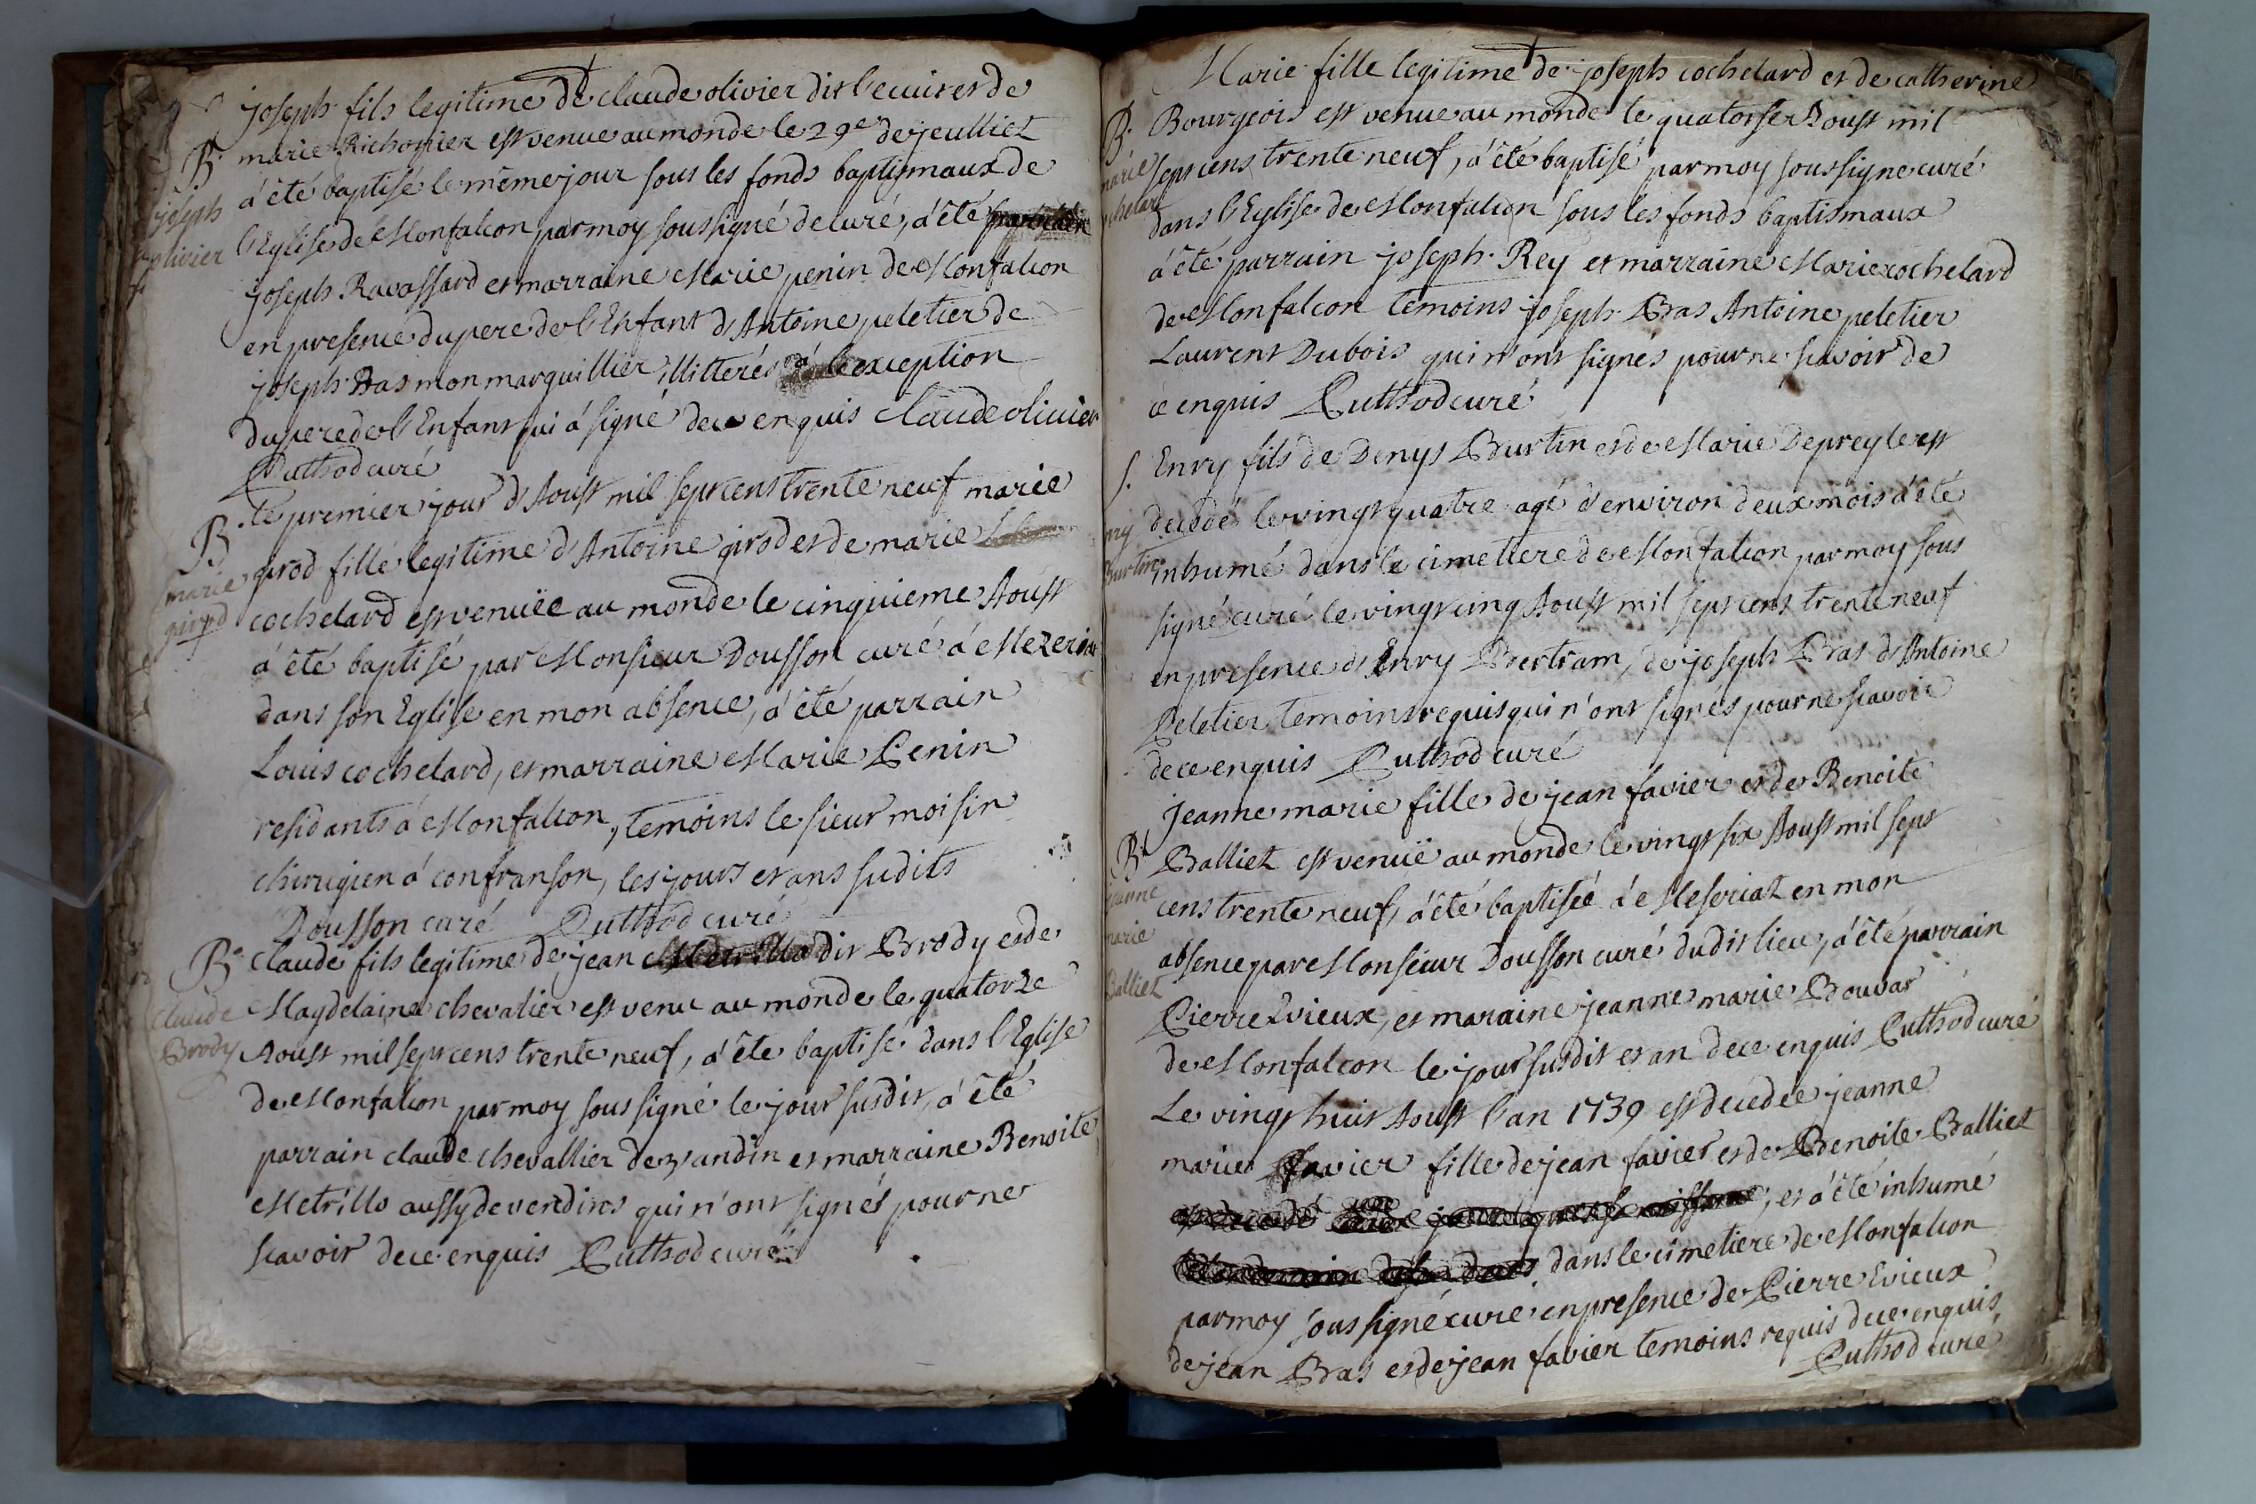 joseph fils legitime de claude olivier dit l'ecuier et de
B. marie Richonier est venue au monde le 29e de jeulliet
à été baptisé le même jour sous les fonds baptismaux de
joseph olivier
l'Eglise de Monfalcon par moy soussigné de curé, à été
joseph Ravassard et marraine Marie penin de Monfalcon
en presence du pere de l'Enfant d'Antoine peletier de
joseph Bas mon marguillier illitterés à l'exception
du pere de l'Enfant qui à signé de ce enquis claude olivier
Cuthod curé
B. Le premier jour d'Aoust mil sept cens trente neuf marie
girod fille legitime d'Antoine girod et de marie
marie girod
cochelard est venuëe au monde le cinquieme Aoust
à été baptisé par Monsieur Dousson curé à Mezeriat
dans son Eglise en mon absence, à été parrain
Louis cochelard, et marraine Marie Penin
residants à Monfalcon, temoins le sieur moisin
chirugien à confranson, les jours et ans sudits
Dousson curé Cuthod curé
B. claude fils legitime de jean Metrillo dit Brody et de
Magdelaine chevalier est venu au monde le quatorze
claude Brody
Aoust mil sept cens trente neuf, à été baptisé dans l'Eglise
de Monfalcon par moy sous signé le jour susdit, à été
parrain claude chevallier de et marraine Benoite
Metrillo aussy de qui n'ont signés pour ne
scavoir de ce enquis Cuthod curé
Marie fille legitime de joseph cochelard et de catherine
B. Bourgeois est venue au monde le quatorse Aoust mil
marie cochelard
sept cens trente neuf, à été baptisé par moy soussigne curé
dans l'Eglise de Monfalcon sous les fonds baptismaux
à été parrain joseph Rey et marraine Marie cochelard
de Monfalcon temoins joseph Bas Antoine peletier
Laurent Dubois qui n'ont signés pour ne scavoir de
ce enquis Cuthod curé
S. Enry fils de Denys Burtin et de Marie Depreyle est
decedé le vingt quatre agé d'environ deux mois à été
Enry Burtin
inhumé dans le cimetiere de Monfalcon par moy sous
signé curé le vingt cinq Aoust mil sept cens trente neuf
en presence d'Enry Bertram, de joseph Bas d'Antoine
Peletier temoins requis qui n'ont signés pour ne scavoir
de ce enquis Cuthod curé
Jeanne marie fille de jean favier et de Benoite
B. Balliet est venuë au monde le vingt six Aoust mil sept
jeanne marie Balliet
cens trente neuf, à été baptiseé à Meseriat en mon
absence par Monsieur Dousson curé dudit lieu, à été parrain
Pierre Evieux, et maraine jeanne marie Bouvar
de Monfalcon le jour susdit et an de ce enquis Cuthod curé
Le vingt huit Aoust l'an 1739 est decedée jeanne
marie favier fille de jean favier et de Benoite Balliet
et à été inhumé
dans le cimetiere de Monfalcon
par moy sous signé curé en presence de Pierre Evieux
de jean Bras et de jean favier temoins requis de ce enquis
Cuthod curé